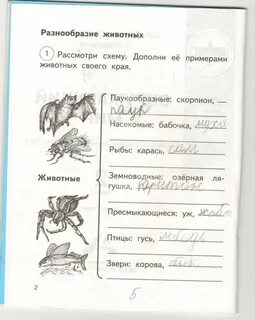 Разнообразие животных
1 Рассмотри схему. Дополни её примерами
животных своего края.
Паукообразные: скорпион,
паук
Насекомые: бабочка, муха
Рыбы: карась, сом
Земноводные: озёрная ля-
гушка, тритоны
Животные
Пресмыкающиеся: уж, жаба
Птицы: гусь, лебедь
Звери: корова,
2
5